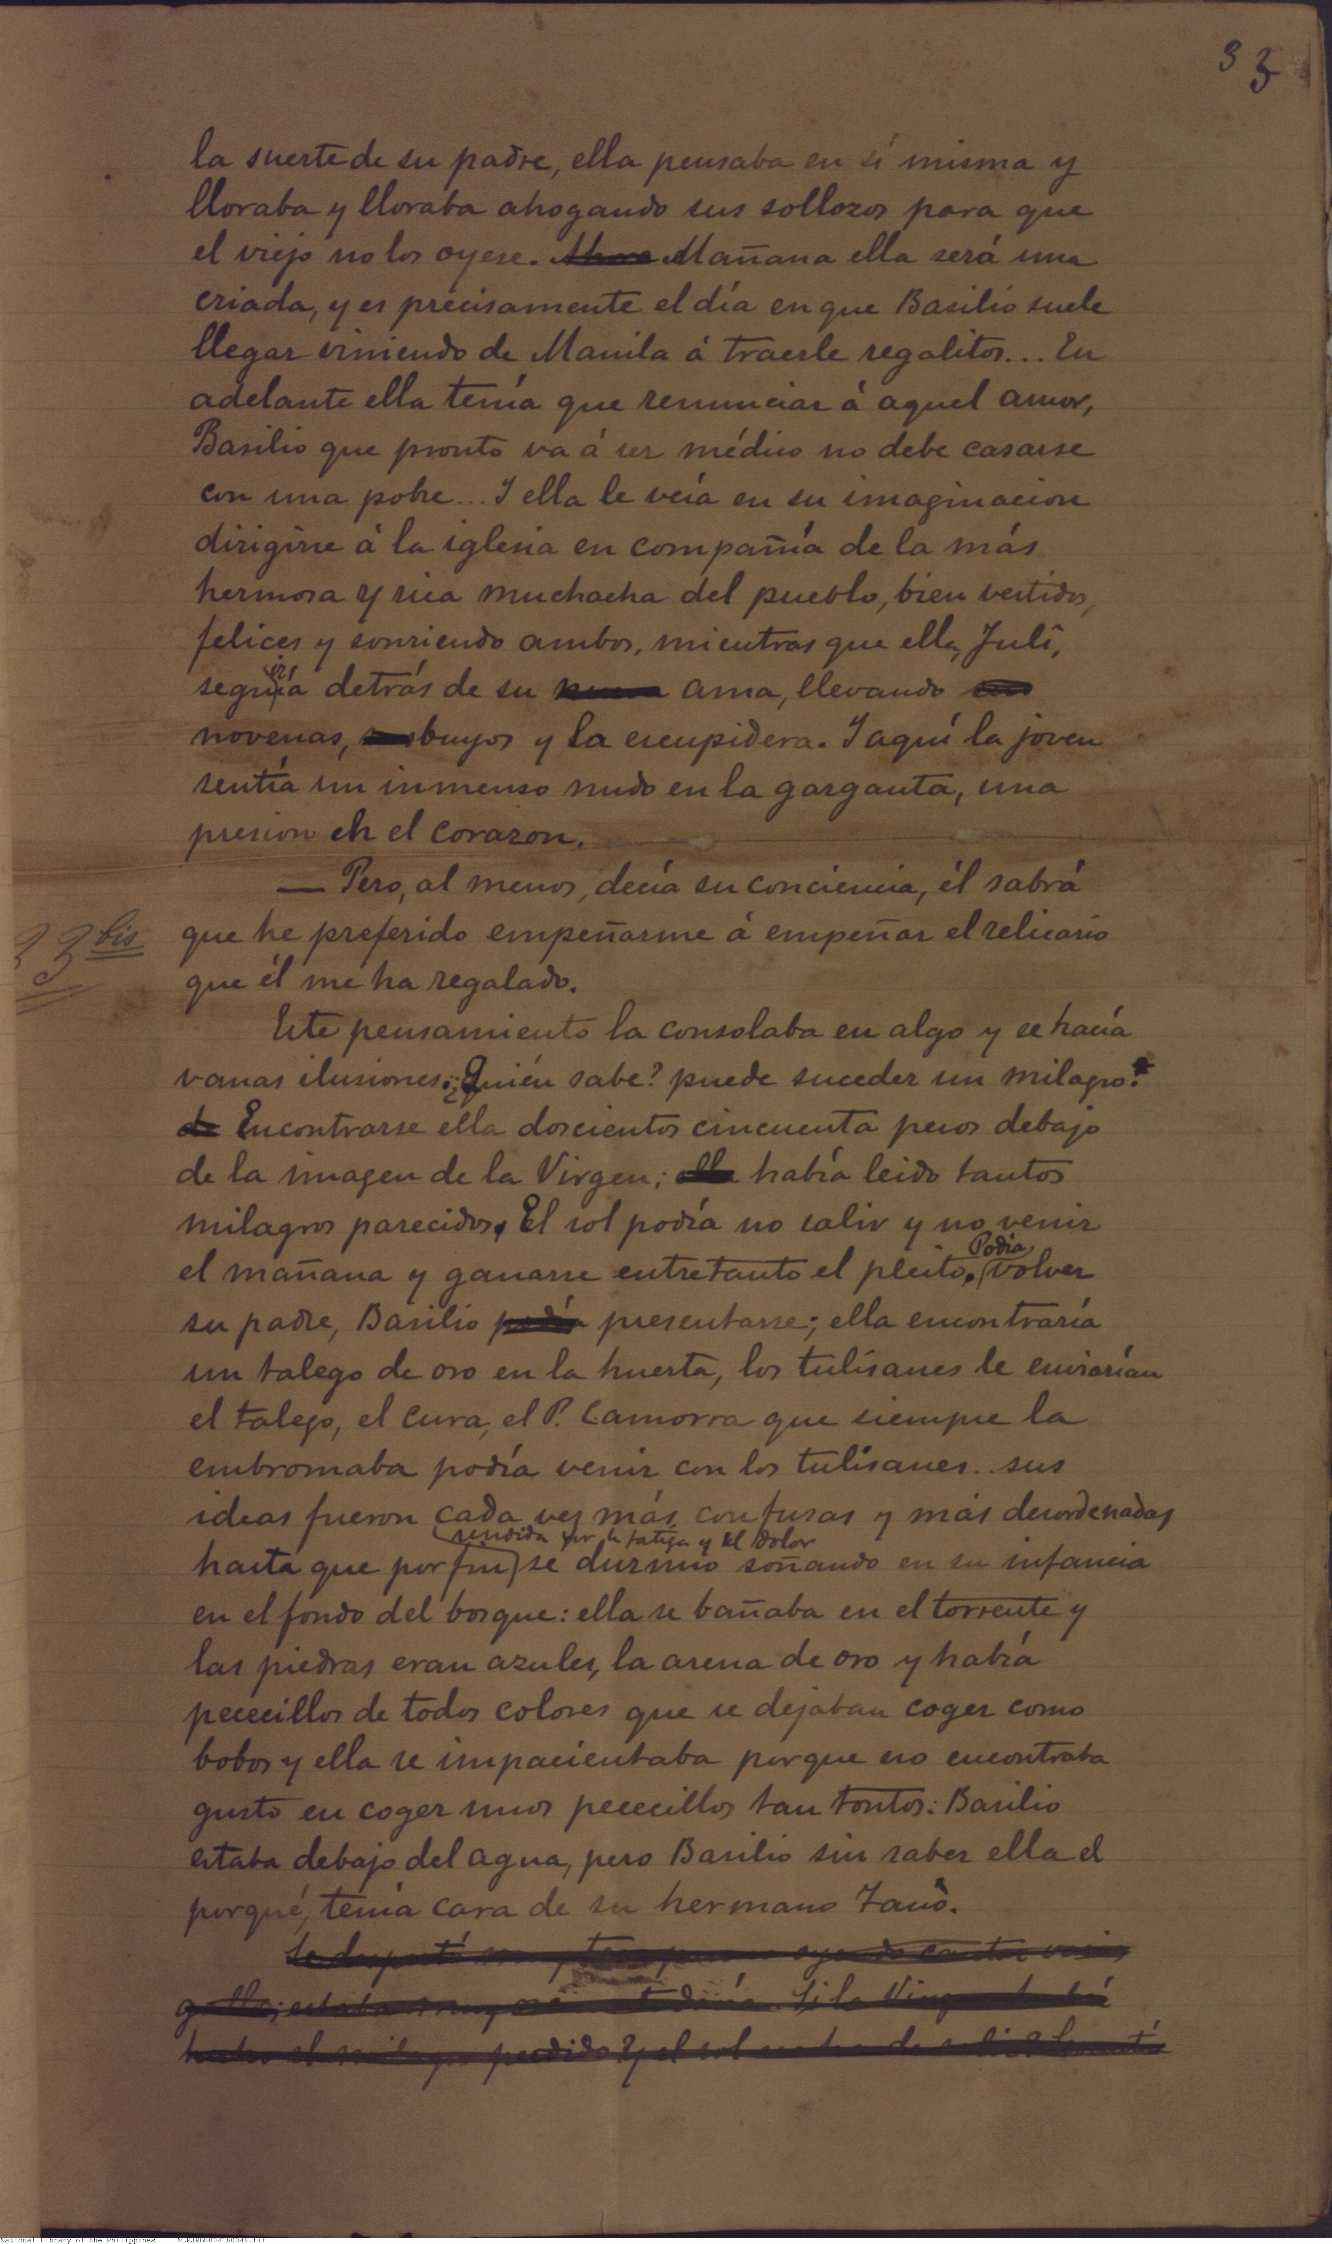 33
la suerte de su padre, ella pensaba en sí misma y
lloraba y lloraba ahogando sus sollozos para que
el viejo no los oyese. Ahora Mañana ella será una
criada, y es precisamente el día en que Basilio suele
llegar viniendo de Manila á traerle regalitos... En
adelante ella tenía que renunciar á aquel amor,
Basilio que pronto va á ser médico no debe casarse
con una pobre... Y ella le veía en su imaginacion
dirigirse á la iglesia en compañía de la más
hermosa y rica muchacha del pueblo, bien vestidos,
felices y sonriendo ambos, mientras que ella, Julî,
seguiría detrás de su nueva ama, llevando
novenas, buyos y la escupidera. Y aquí la joven
sentía un inmenso nudo en la garganta, una
presion en el corazon.
— Pero, al menos, decía su conciencia, él sabrá
33 bis
que he preferido empeñarme á empeñar el relicario
que él me ha regalado.
Este pensamiento la consolaba en algo y se hacía
vanas ilusiones. ¿Quién sabe? puede suceder un milagro:
Encontrarse ella doscientos cincuenta pesos debajo
de la imagen de la Virgen; ella había leido tantos
milagros parecidos. El sol podía no salir y no venir
el mañana y ganarse entretanto el pleito. Podía volver
su padre, Basilio podía presentarse; ella encontraría
un talego de oro en la huerta, los tulisanes le enviarían
el talego, el cura, el P. Camorra que siempre la
embromaba podía venir con los tulisanes.. sus
ideas fueron cada vez más confusas y más desordenadas
rendida por la fatiga y el dolor
hasta que por fin, se durmió soñando en su infancia
en el fondo del bosque: ella se bañaba en el torrente y
las piedras eran azules, la arena de oro y había
pececillos de todos colores que se dejaban coger como
bobos y ella se impacientaba porque no encontraba
gusto en coger unos pececillos tan tontos: Basilio
estaba debajo del agua, pero Basilio sin saber ella el
porqué, tenía cara de su hermano Tanò.
Se despertó muy temprano oyendo cantar
gallo; estaba muy Si la Virgen
el milagro pedido? y el sol
National Library of the Philippines